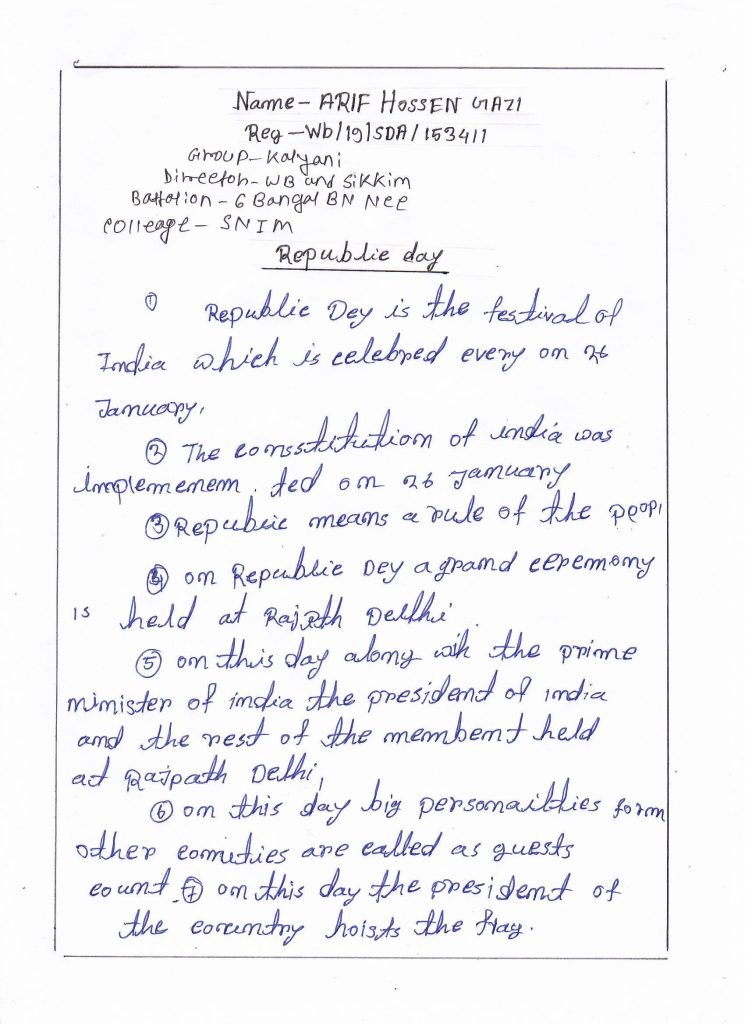 Name- ARIF HOSSEN GAZI
Reg-Wb/19/SDA/153411
Group-Kalyani
Direetoh-WB and Sikkim
Battotion - 6 Bangal BN Nee
Colleage- SNIM
Republie day
① Republie Dey is the festival of
India which is celebred every on 26
January,
② The eonsstitution of india was
implemenem. ted on 26 January
③ Republie means a rule of the peopl
④ on Republie Dey a grand eeremony
is held at Rajpth Dellhi
⑤ on this day along wih the prime
minister of india the president of india
and the rest of the membemt held
at Rajpath Delhi,
⑥ on this day big personailties form
other eomuties are ealled as guests
eount. ⑦ on this day the president of
the eorentry hoists the flag.